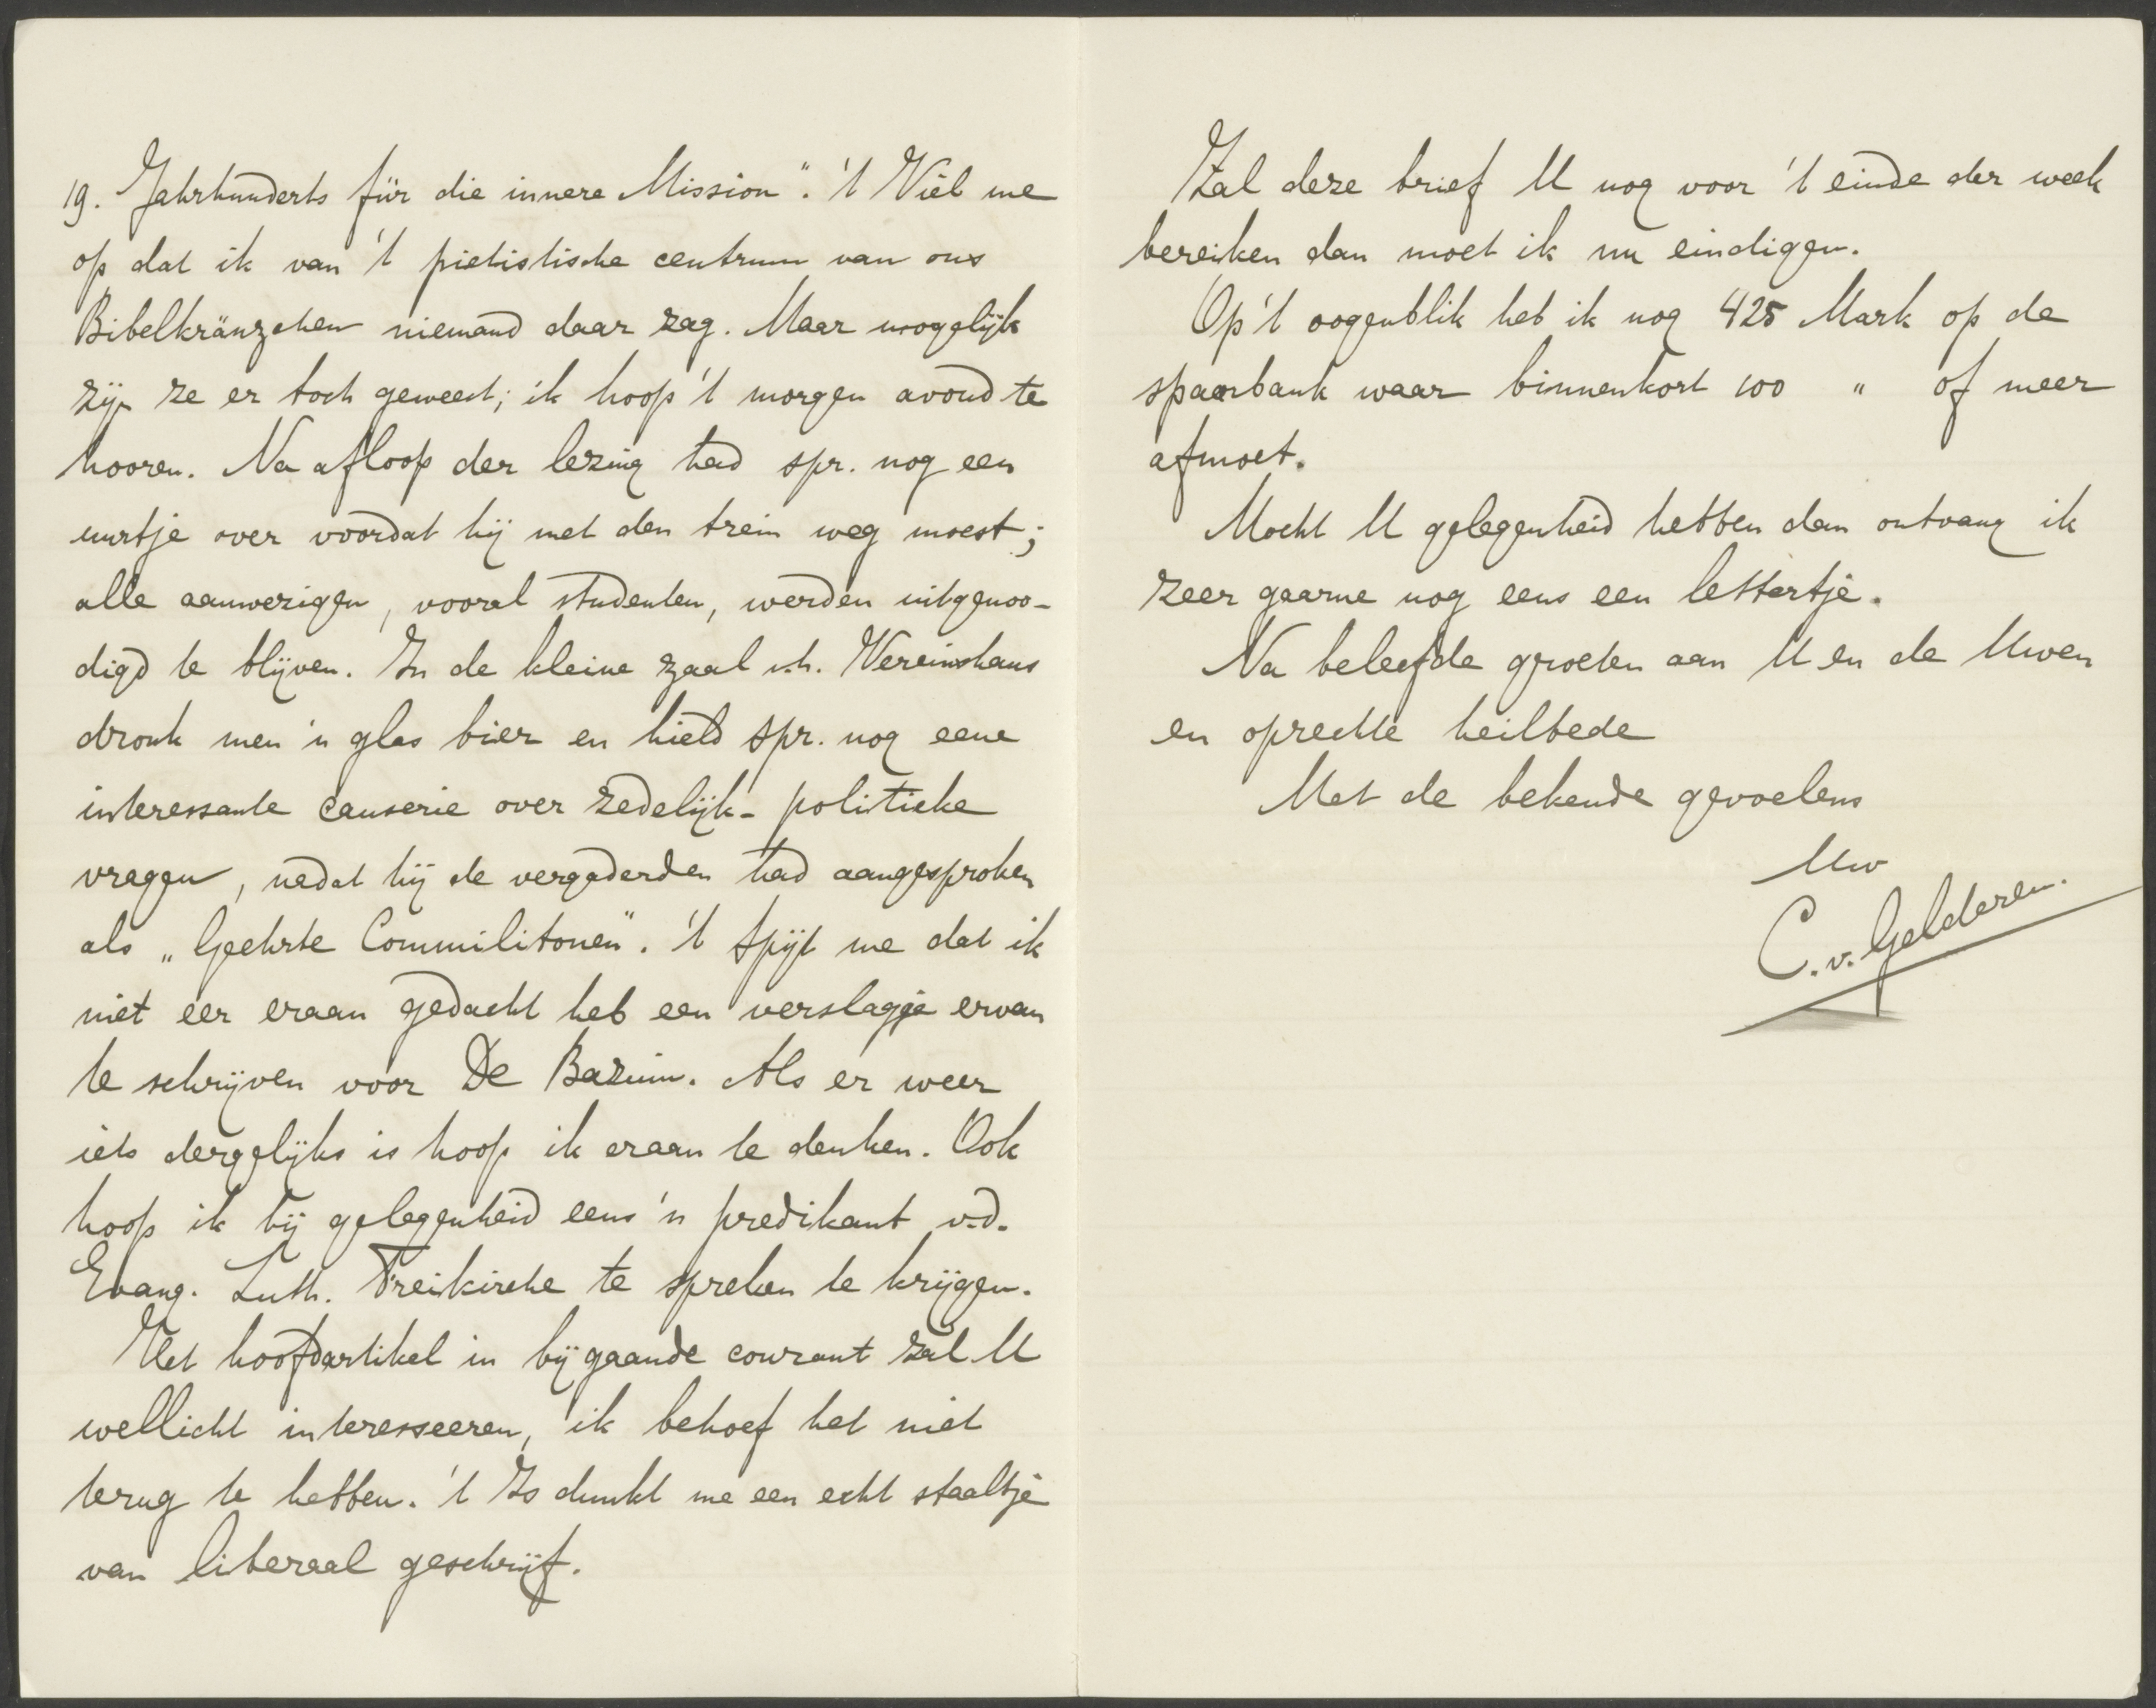 19. Jahrhunderts für die innere Mission". 't Viel me
op dat ik van 't pietistische centrum van ons
Bibelkränzchen niemand daar zag. Maar mogelijk
zijn ze er toch geweest; ik hoop 't morgen avond te
hooren. Na afloop der lezing had spr. nog een
uurtje over voordat hij met den trein weg moest;
alle aanwezigen, vooral studenten, werden uitgenoo-
digd te blijven. In de kleine zaal v.h. Vereinshaus
dronk men 'n glas bier en hield spr. nog eene
interessante causerie over zedelijk-politieke
vragen, nadat hij de vergaderden had aangesproken
als „Geehrte Commilitonen". 't Spijt me dat ik
niet eer eraan gedacht heb een verslagje ervan
te schrijven voor De Bazuin. Als er weer
iets dergelijks is hoop ik eraan te denken. Ook
hoop ik bij gelegenheid eens 'n predikant v.d.
Evang. Luth. Freikirche te spreken te krijgen.
Het hoofdartikel in bijgaande courant zal U
wellicht interesseeren, ik behoef het niet
terug te hebben. 't Is dunkt me een echt staaltje
van liberaal geschrijf.
Zal deze brief U nog voor 't einde der week
bereiken dan moet ik nu eindigen.
Op 't oogenblik heb ik nog 425 Mark op de
spaarbank waar binnenkort 100 " of meer
afmoet.
Mocht U gelegenheid hebben dan ontvang ik
zeer gaarne nog eens een lettertje.
Na beleefde groeten aan U en de Uwen
en oprechte heilbede
Met de bekende gevoelens
Uw
C. v. Gelderen.